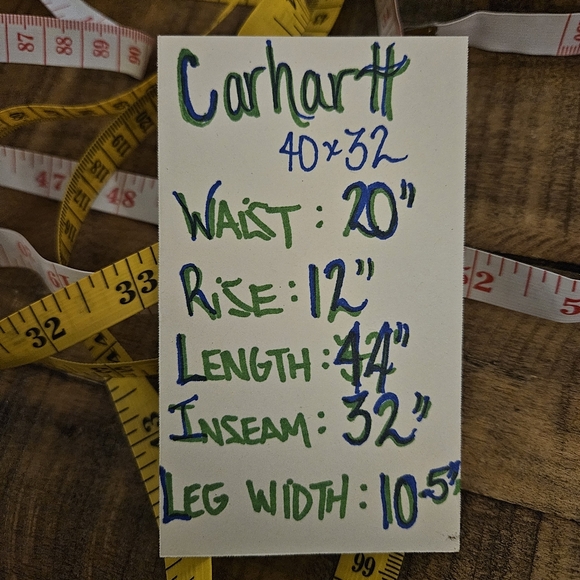 Carhartt
40x32
WAIST: 20"
RISE: 12"
LENGTH: 44"
INSEAM: 32"
LEG WIDTH: 10.5"
87 88 89 90
47 48
32 33
52
99